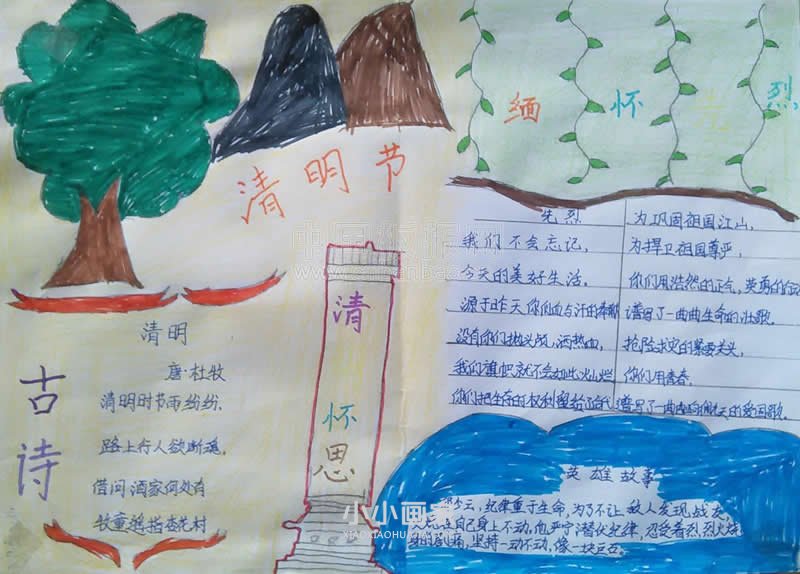 清明节
缅怀先烈
清明
唐·杜牧
清明时节雨纷纷,
路上行人欲断魂,
借问酒家何处有
牧童遥指杏花村
古诗
清
怀
思
先烈
我们不会忘记,
今天的美好生活,
源于昨天你们血与汗的奉献
没有你们抛头颅,洒热血,
我们旗帜就不会如此灿烂
你们把生存的权利留给了
为巩固祖国江山,
为捍卫祖国尊严,
你们用浩然的正气,英勇的
谱写了一曲曲生命的壮歌。
抢险救灾的紧要关头,
你们用青春,
谱写了一曲曲 的爱国歌。
英雄故事
邱少云,纪律重于生命,为了不让敌人发现,战友
自己身上不动,他严守潜伏纪律,忍受着烈烈火烧
身的剧痛,坚持一动不动,像一块巨石。
小小画家
XIAOXIAOHUAJIA